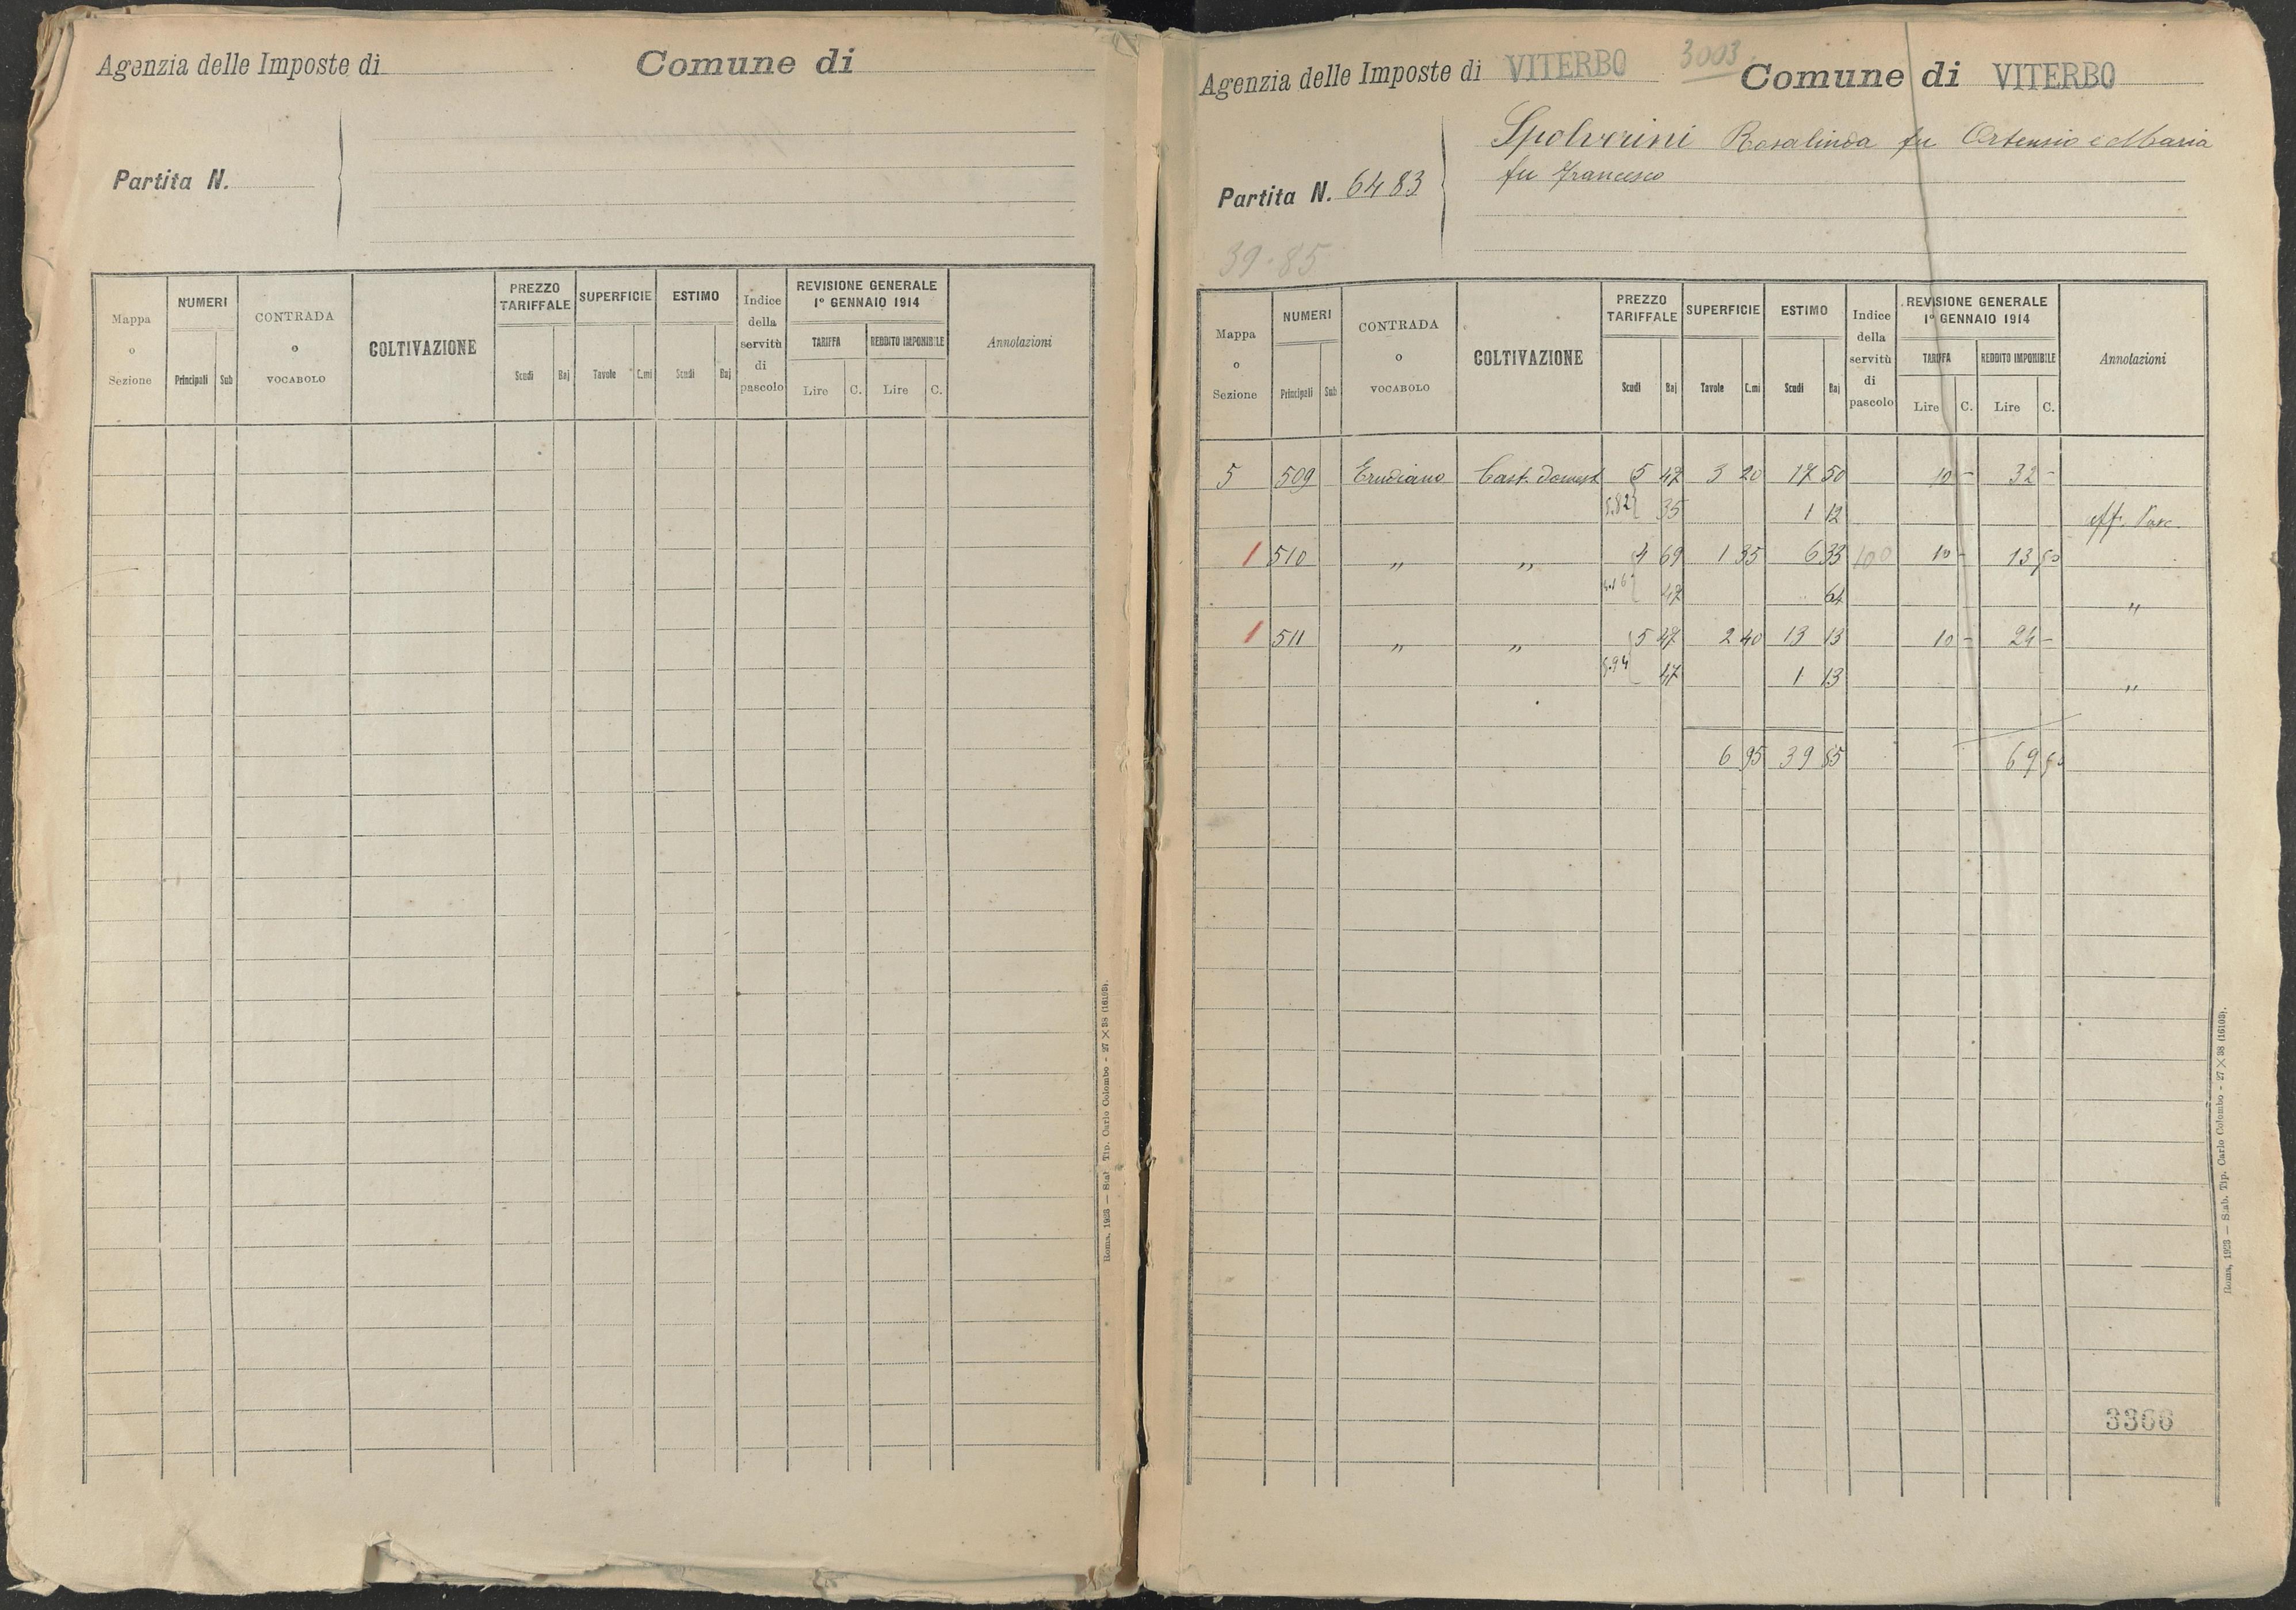 Agenzia delle Imposte di
Comune di
Partita N.
Mappa o Sezione
NUMERI
Principali Sub
CONTRADA o VOCABOLO
COLTIVAZIONE
PREZZO TARIFFALE
Scudi Baj
SUPERFICIE
Tavole C.mi
ESTIMO
Scudi Baj
Indice della servitù di pascolo
REVISIONE GENERALE
1º GENNAIO 1914
TARIFFA
Lire C.
REDDITO IMPONIBILE
Lire C.
Annotazioni
Roma, 1923 — Stab. Tip. Carlo Colombo - 27 × 38 (16103).
Agenzia delle Imposte di VITERBO
3003
Comune di VITERBO
Spolverini Rosalinda fu Ortensio e Maria
fu Francesco
Partita N. 6483
39.85
Mappa o Sezione
NUMERI
Principali Sub
CONTRADA o VOCABOLO
COLTIVAZIONE
PREZZO TARIFFALE
Scudi Baj
SUPERFICIE
Tavole C.mi
ESTIMO
Scudi Baj
Indice della servitù di pascolo
REVISIONE GENERALE
1º GENNAIO 1914
TARIFFA
Lire C.
REDDITO IMPONIBILE
Lire C.
Annotazioni
5 509 Cast. domest 5 47 3 20 17 50 10 - 32 -
5.82 35 1 12 aff. Pasc.
1 510 " " 4 69 1 35 6 33 100 10 - 13 50
5.16 47 64 "
1 511 " " 5 47 2 40 13 13 10 - 24 -
5.94 47 1 13 "
6 95 39 85 69 50
3366
Roma, 1923 — Stab. Tip. Carlo Colombo - 27 × 38 (16103).